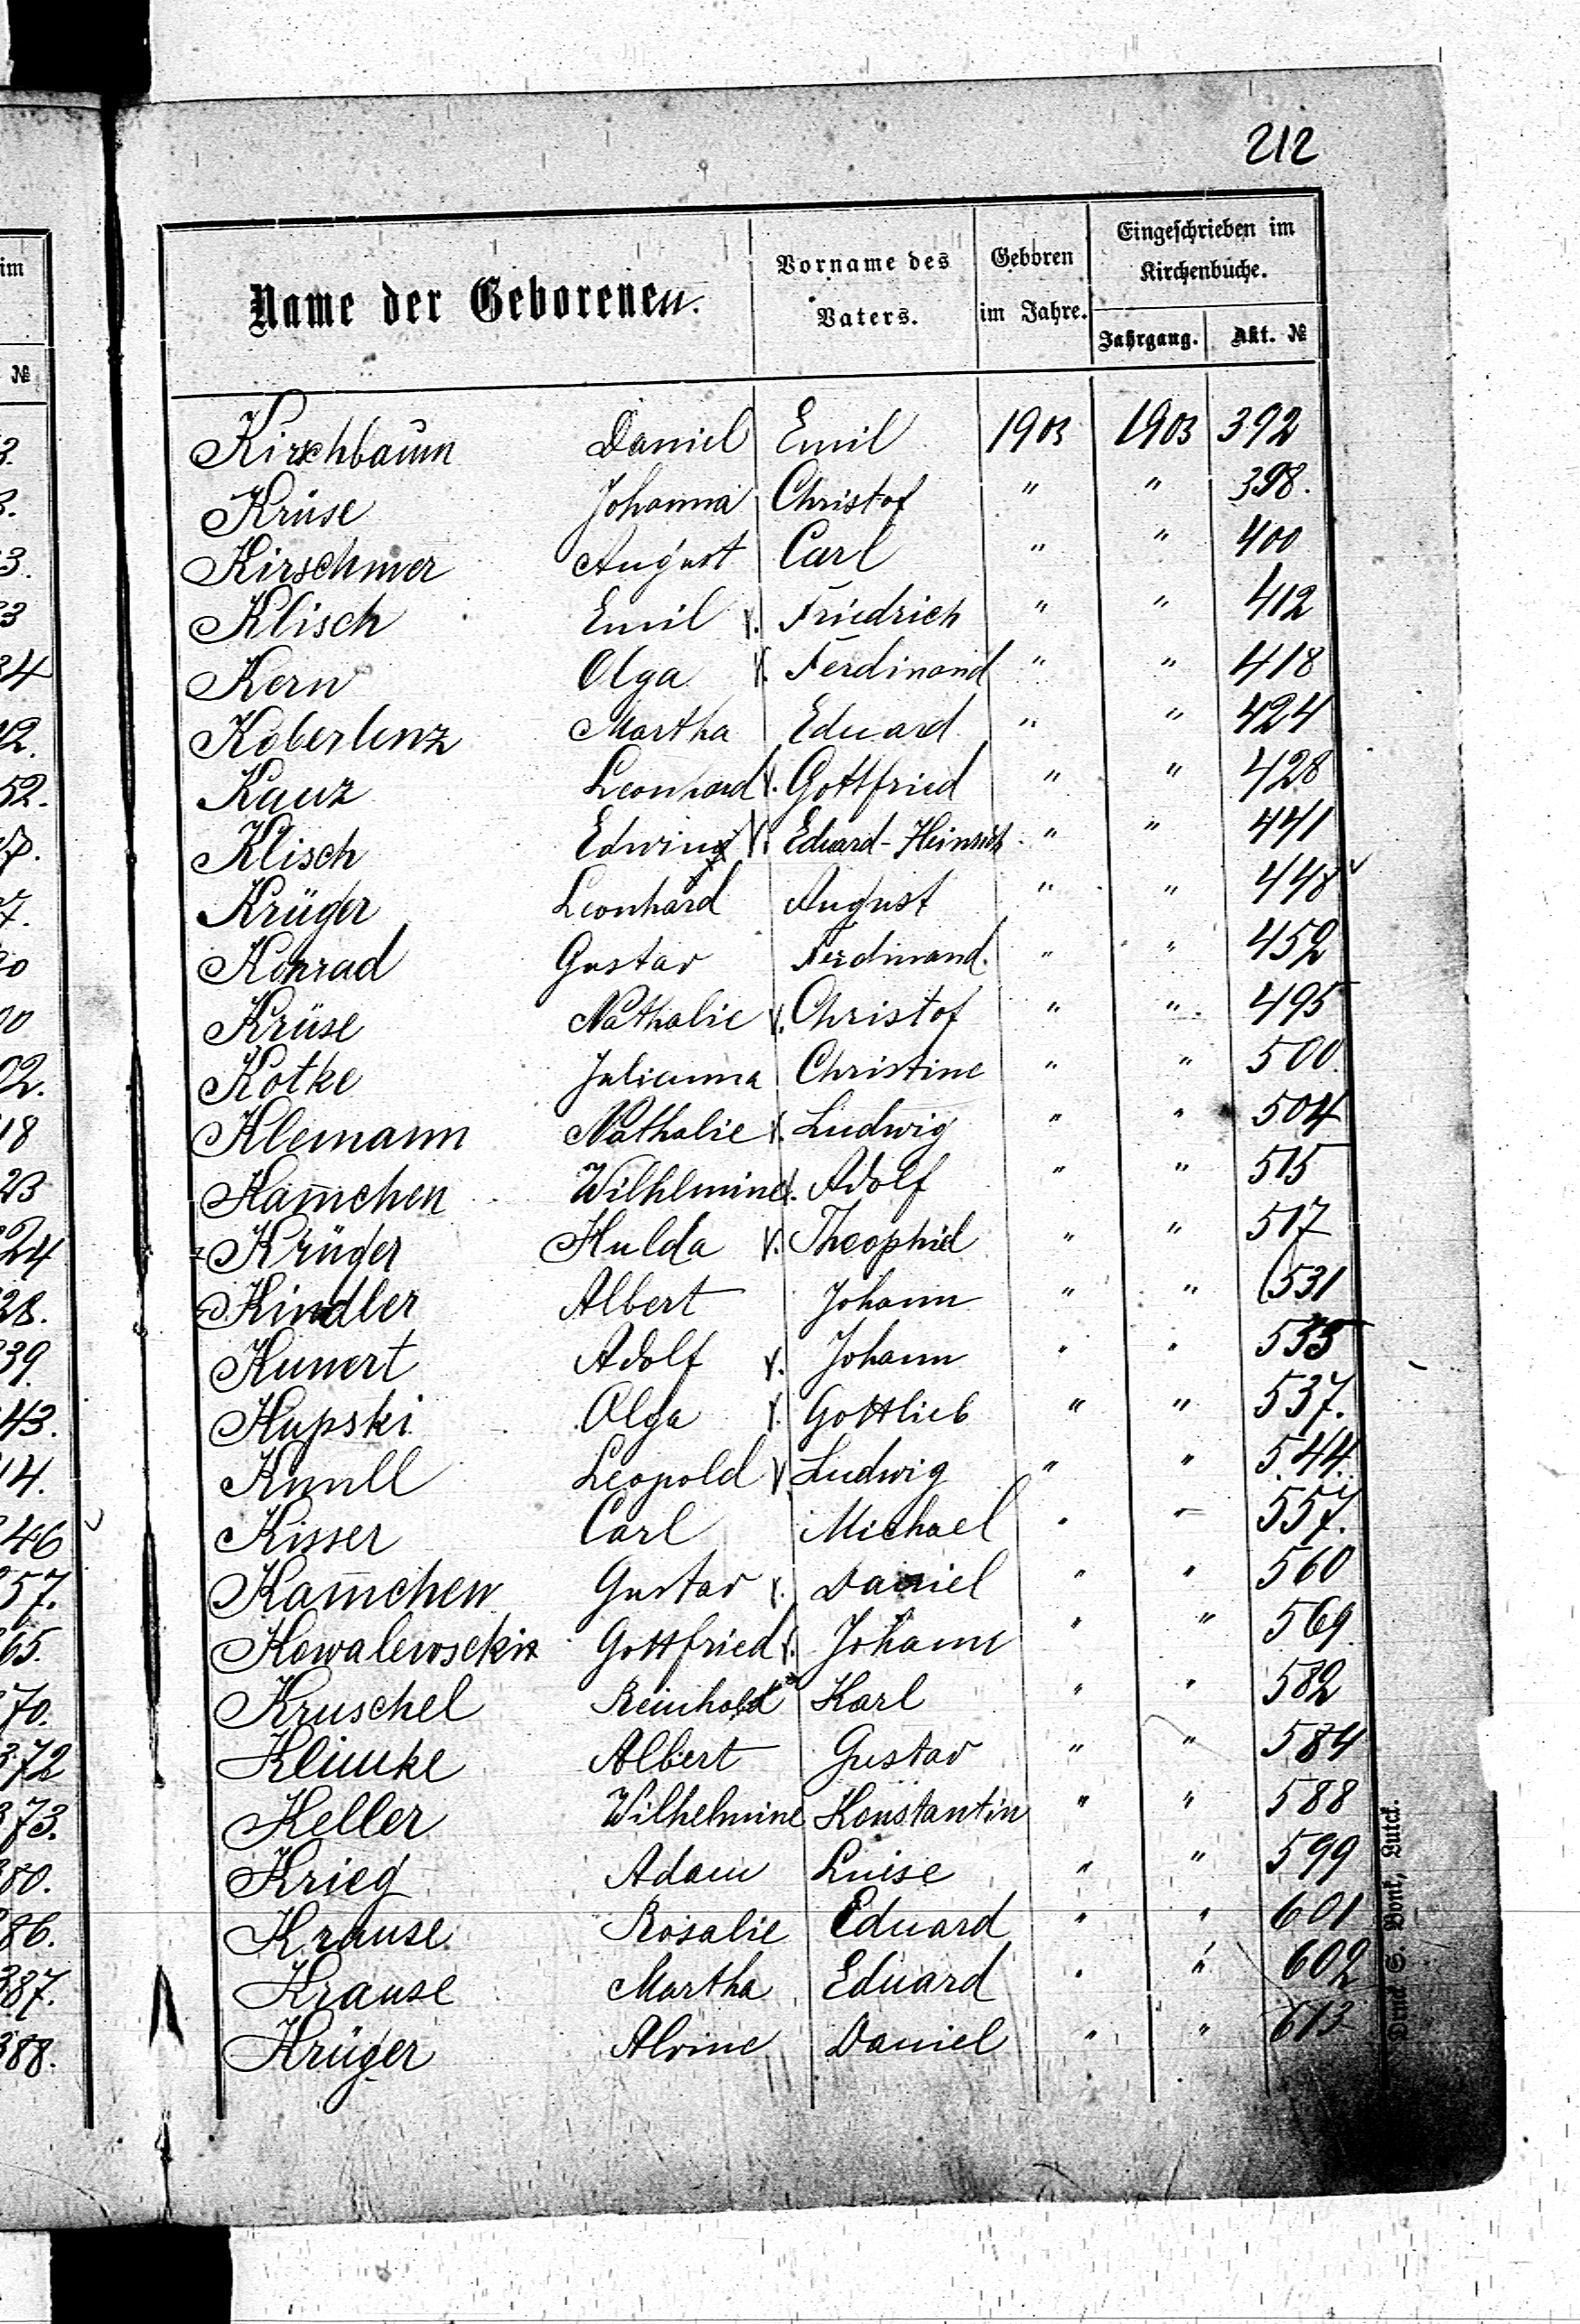 212
Name der Geborenen. Vorname des Vaters. Geboren im Jahre. Eingeschrieben im Kirchenbuche.
Jahrgang. Akt. №
Kirschbaum Daniel Emil 1903 1903 392
Krüse Johanna Christof " " 398.
Kirschmer August Carl " " 400
Klisch Emil v. Friedrich " " 412
Kern Olga v. Ferdinand " " 418
Koberlenz Martha Eduard " " 424
Kauz Leonhard v. Gottfried " " 428
Klisch Edwin v. Eduard-Heinrich " " 441
Krüger Leonhard August " " 448
Konrad Gustav Ferdinand. " " 452
Krüse Nathalie v. Christof " " 495
Kotke Julianna Christine " " 500.
Klemann Nathalie v. Ludwig " " 504
Kam̄chen Wilhlmine v. Adolf " " 515
Krüger Hulda v. Theophiel " " 517
Kindler Albert Johann " " 531
Kunert Adolf v. Johann " " 535
Kupski Olga v. Gottlieb " " 537.
Knull Leopold v. Ludwig " " 544.
Kisser Carl Michael " " 557.
Kam̄chen Gustav v. Daniel " " 560
Kowalewscki Gottfried v. Johann " " 569
Kruschel Reinhold Karl " " 582
Klimke Albert Gustav " " 584
Keller Wilhelmine Konstantin " " 588
Krieg Adam Luise " " 599
Krause Rosalie Eduard " " 601
Krause Martha Eduard " " 602
Krüger Alvine Daniel " " 613
im
№
3.
3.
3.
3
34
42.
52.
7.
90
00
02.
18
23
24
28.
39.
43.
14.
46
57.
65.
70.
372
373.
380.
386.
387.
388.